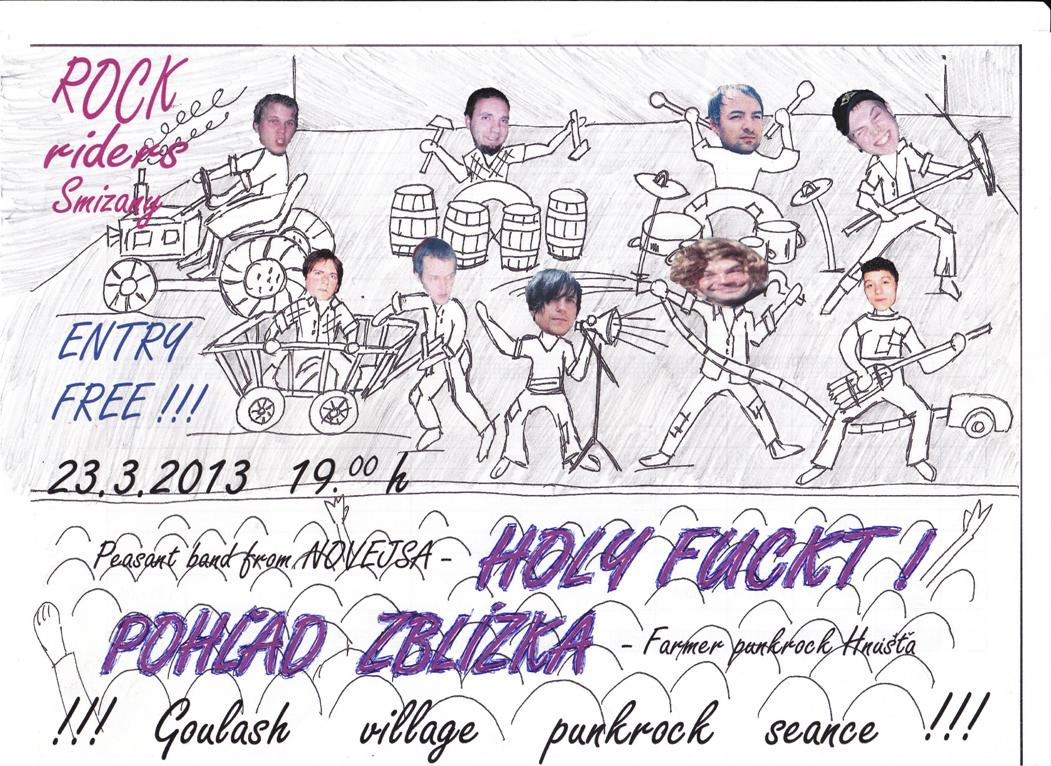 ROCK
riders
Smizany
ENTRY
FREE !!!
23.3.2013 19.00 h
Peasant band from NOVEJSA - HOLY FUCKT !
POHĽAD ZBLÍZKA - Farmer punkrock Hnúšťa
!!! Goulash village punkrock seance !!!